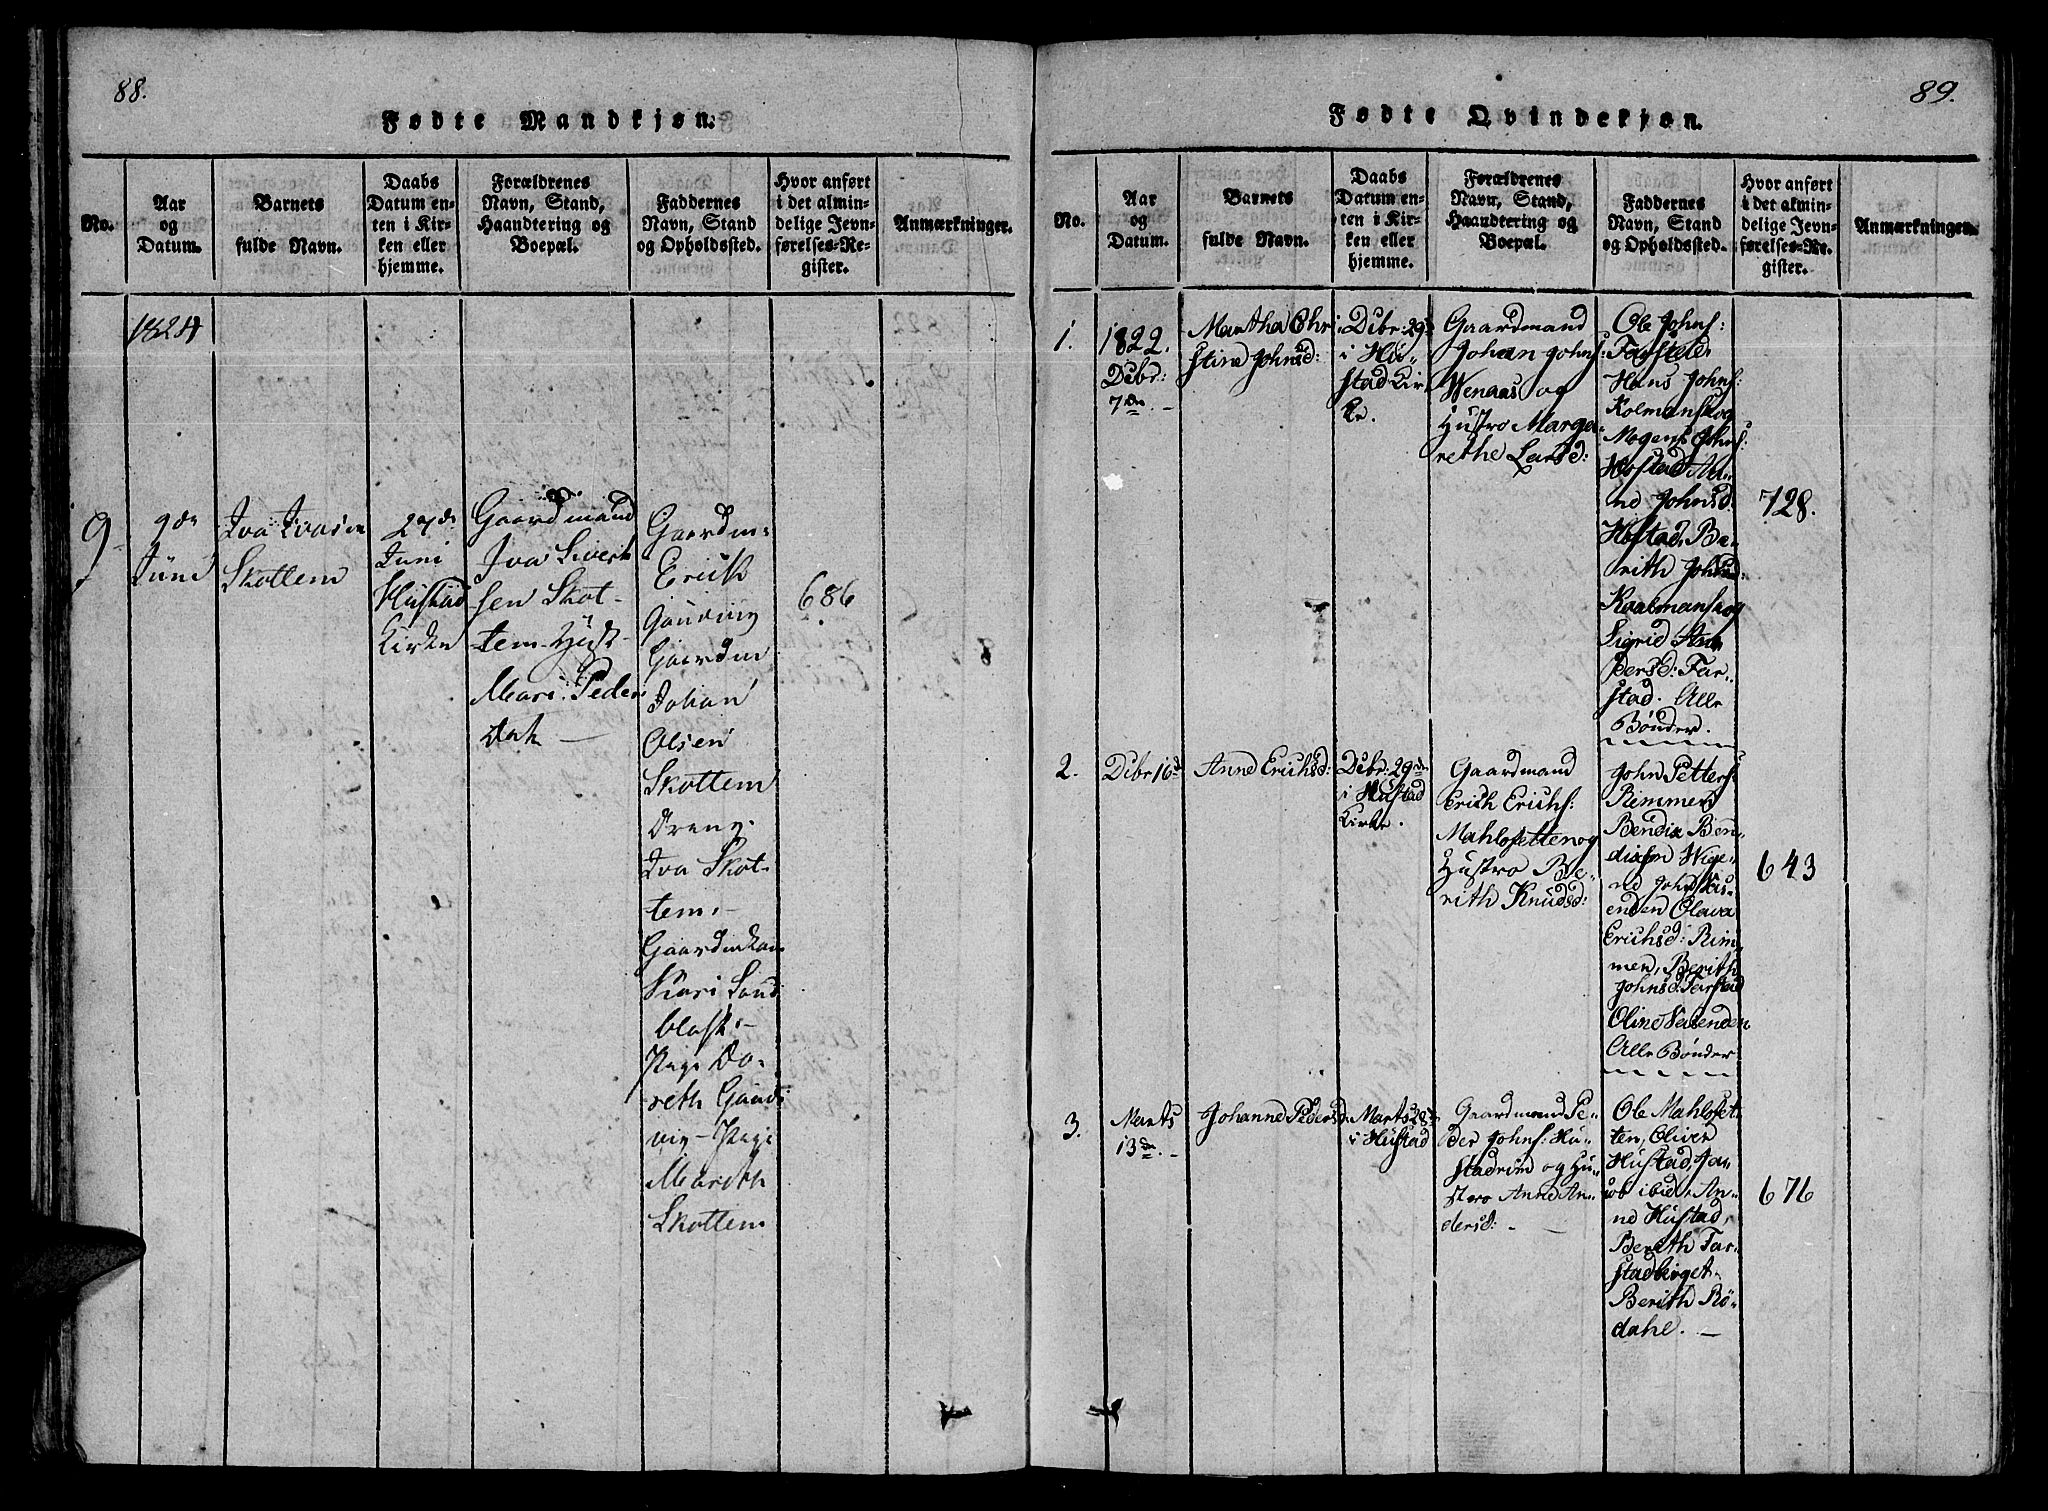 88.
Fødte Mandkjøn.
No.
Aar
og
Datum.
Barnets
fulde Navn.
Daabs
Datum en-
ten i Kir-
ken eller
hjemme.
Forældrenes
Navn, Stand,
Haandtering og
Boepæl.
Faddernes
Navn, Stand
og Opholdssted.
Hvor anført
i det almin-
delige Jevn-
førelses-Re-
gister.
Anmærkninger.
1824
9
9de
Juni
Iva Ivasen
Skottem
27de
Juni
Hustad
Kirke
Gaardmand
Iva Sivert
sen Skot-
tem Hust
Mari Peders
Dat
Gaardm:
Erich
Gaardm
Johan
Olsen
Skottem
Dreng.
Iva Skot-
tem.
Kari Sand
blast.
Pige Do-
reth
Pige
Mareth
Skottem
686
89.
Fødte Qvindekjøn.
No.
Aar
og
Datum.
Barnets
fulde Navn.
Daabs
Datum en-
ten i Kir-
ken eller
hjemme.
Forældrenes
Navn, Stand,
Haandtering og
Boepæl.
Faddernes
Navn, Stand
og Opholdssted.
Hvor anført
i det almin-
delige Jevn-
førelses-Re-
gister.
Anmærkninger.
1.
1822.
Decbr:
7de. -
Martha Chri
stine Johnsd:
Decbr: 29de
i Hu-
stad Kir
ke.
Gaardmand
Johan Johns:
Wenaas og
Hustro Marga-
rethe Larsd:
Ole Johns:
Farstad,
Hans Johns:
Kolmanskog
Mogens Johns:
Hostad, An-
ne Johnsd:
Hostad, Be-
rith Johnsd:
Kaalmanskog
Sigrid An
dersd: Far-
stad. Alle
Bønder.
728.
2.
Decbr 16de
Anne Erichsd:
Decbr: 29de
i Hustad
Kirke.
Gaardmand
Erich Erichs:
Mahlesetten og
Hustro Be-
rith Knudsd:
John Petters:
Remmen
Bendix Ben-
dixsen Wige-
ne John
enden Olava
Erichsd: Rim-
men, Berith
Johnsd: Farstad
Oline
Alle Bønder
643
3.
Marts
13de. -
Johanne Pedersd:
Marts 28de
i Hustad
Gaardmand Pe-
der Johns: Hu-
stadvim og Hu-
stro Anne An-
dersd: -
Ole Mahleset-
ten, Oliver
Hustad, Ja-
cob ibid: An-
ne Hustad,
Berith Far-
stadberget
Berith Rø-
dahl. -
676